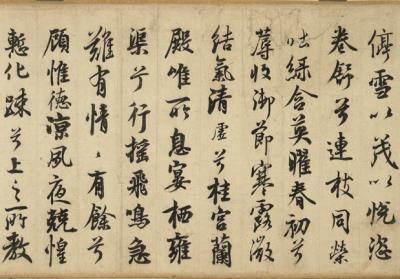 停雪以茂以悅恣
卷舒兮連枝同榮
吐綠含英曜春初兮
蓐收御節寒露微
結氣清虛兮桂宮蘭
殿唯所息宴棲雍
渠兮行搖飛鳴急
難有情〻有餘兮
顧惟德涼夙夜兢惶
慙化踈兮上之所教